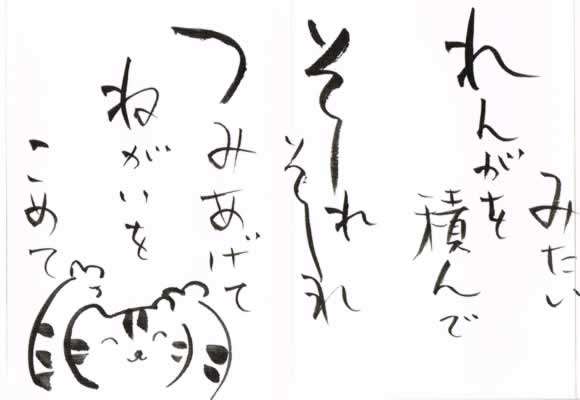 みたい
れんがを
積んで
そーれ
そーれ
つみあげて
ねがいを
こめて